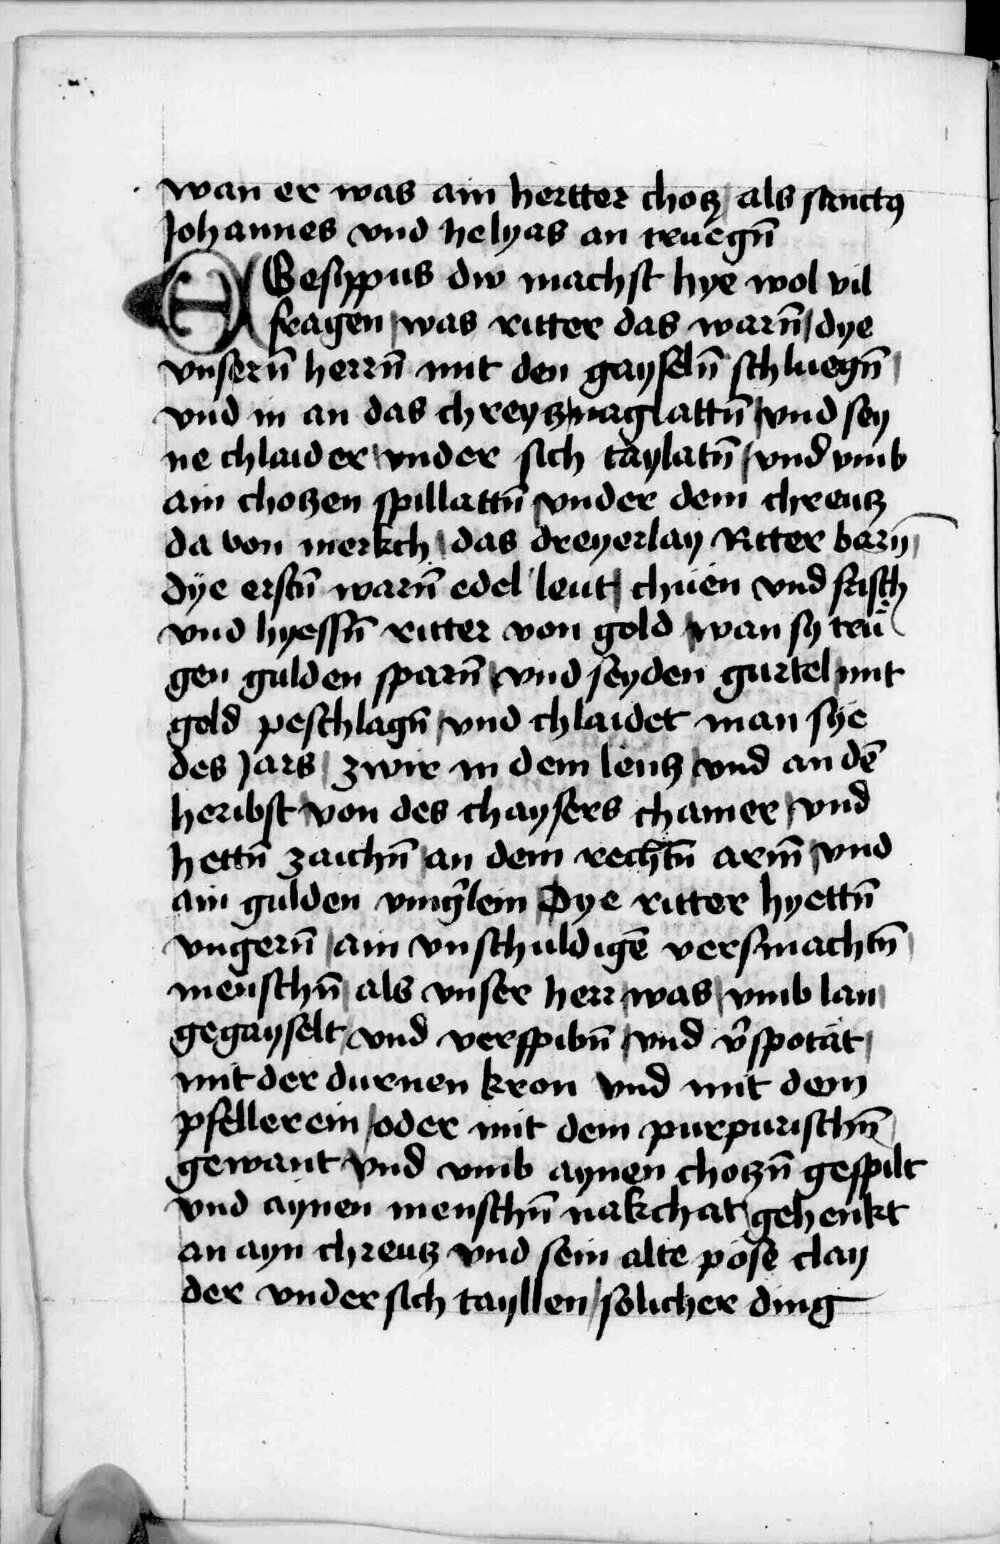 wan er was ain hertter chotz / als sanctꝯ
Johannes vnd helyas an truegn̄
HEgesyppus dw machst hye wol vil
fragen / was ritter das warn̄ / dye
vnsern̄ herrn̄ mit den gayseln̄ schluegn̄ /
vnd in an das chreytz naglattn̄ / vnd sey
ne chlaider / vnder sich taylatn̄ / vnd vmb
ain chotzen spillattn̄ vnder dem chreutz
da von merkch / das dreyerlay Ritter warn̄ /
dye erstn̄ warn̄ edel leut / chuen vnd frisch
vnd hyessn̄ ritter von gold / wan sy true
gen gulden sparn̄ / vnd seyden gurtel mit
gold peschlagn̄ / vnd chlaidet man sye
des Jars / zwir in dem lentz / vnd an dē
heribst von des chaysers chamer / vnd
hettn̄ zaichn̄ / an dem rechtn̄ arm̄ / vnd
ain gulden vingˀlein Dye ritter hyettn̄
vngern̄ / ain vnschuldigē versmachtn̄ /
menschn̄ / als vnser herr was / vmb lan /
gegayselt / vnd verspibn̄ / vnd vˀspotat /
mit der durnen kron vnd mit dem
pfellerein / oder mit dem purpurischn̄ /
gewant vnd vmb aynen chotzn̄ gespilt
vnd aynen menschn̄ nakchat / gehenkt
an ayn chreutz vnd sein alte pose clay
der vnder sich tayllen / solicher ding